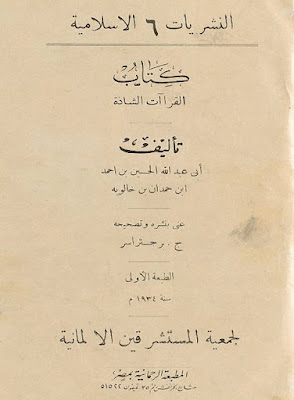 النشريات ٦ الاسلامية
كتاب
القراآت الشاذة
تأليف
أبى عبد الله الحسين بن احمد
ابن حمدان بن خالويه
عنى بنشره وتصحيحه
ج . برجشتراسر
الطبعة الاولى
سنة ١٩٣٤ م
لجمعية المستشرقين الالمانية
المطبعة الرحمانية بمصر
٣٥ تليفون ٥١٥٢٢